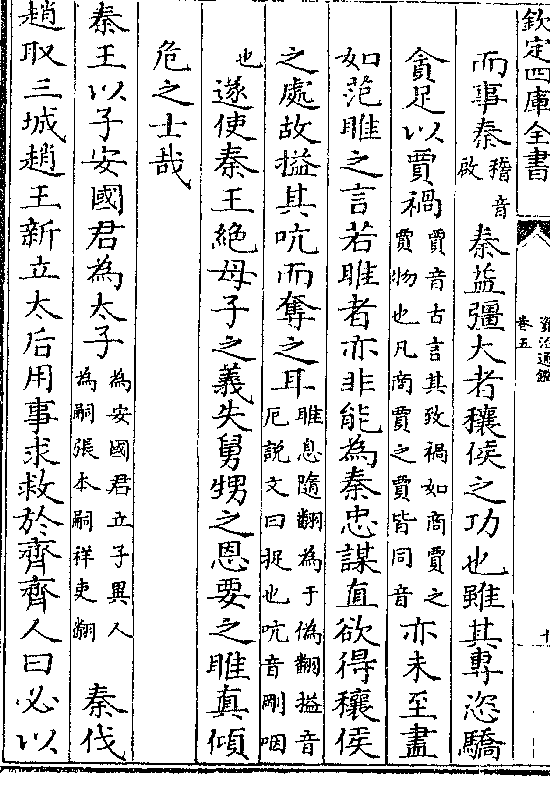 欽定四庫全書
資治通鑑
卷五
十
而事秦稽音啟秦益彊大者穰侯之功也雖其專恣驕
貪足以賈禍賈音古言其致禍如商賈之賈物也凡商賈之賈皆同音亦未至盡
如范睢之言若睢者亦非能為秦忠謀直欲得穰侯
之處故搤其吭而奪之耳睢息隨翻為于偽翻搤音厄說文曰捉也吭音剛咽
也遂使秦王絶母子之義失舅甥之恩要之睢真傾
危之士哉
秦王以子安國君為太子為安國君立子異人為嗣張本嗣祥吏翻秦伐
趙取三城趙王新立太后用事求救於齊齊人曰必以